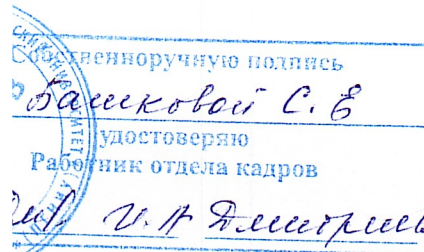 Собственноручную подпись
Башковой С. Е
удостоверяю
Работник отдела кадров
И. А Дмитриев